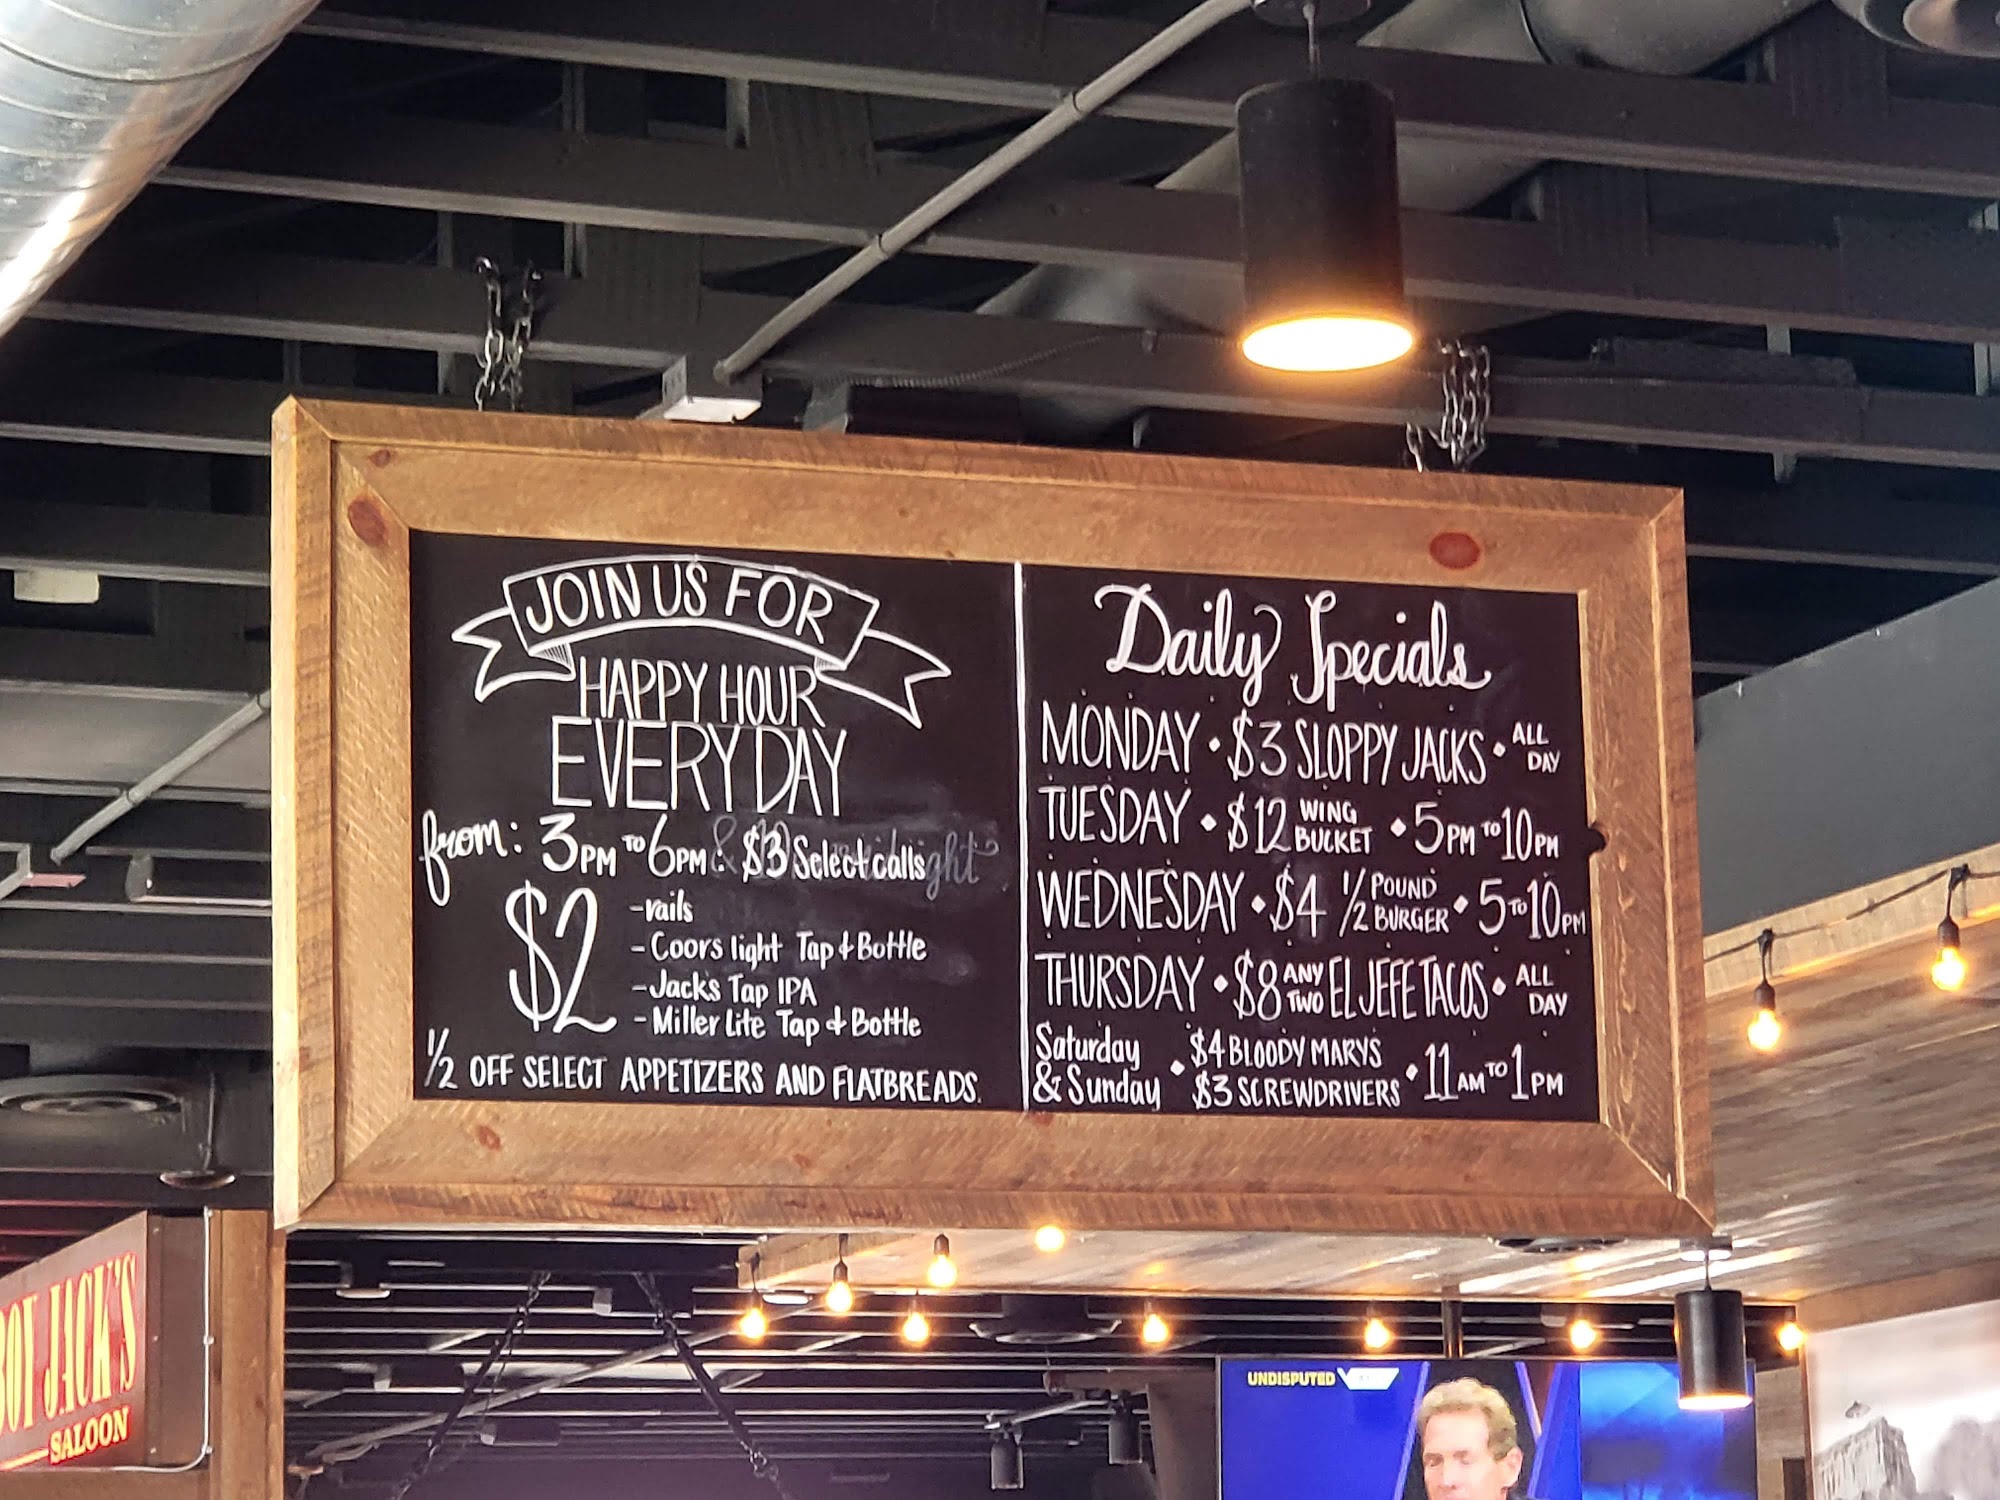 JOIN US FOR
HAPPY HOUR
EVERY DAY
from: 3PM TO 6PM: $3 Select calls
$2
-rails
-Coors light Tap & Bottle
-Jacks Tap IPA
-Miller Lite Tap & Bottle
1/2 OFF SELECT APPETIZERS AND FLATBREADS.
Daily Specials
MONDAY • $3 SLOPPY JACKS • ALL DAY
TUESDAY • $12 WING BUCKET • 5PM TO 10PM
WEDNESDAY • $4 1/2 POUND BURGER • 5 TO 10PM
THURSDAY • $8 ANY TWO EL JEFE TACOS • ALL DAY
Saturday & Sunday • $4 BLOODY MARYS $3 SCREWDRIVERS • 11AM TO 1PM
JACK'S
SALOON
UNDISPUTED